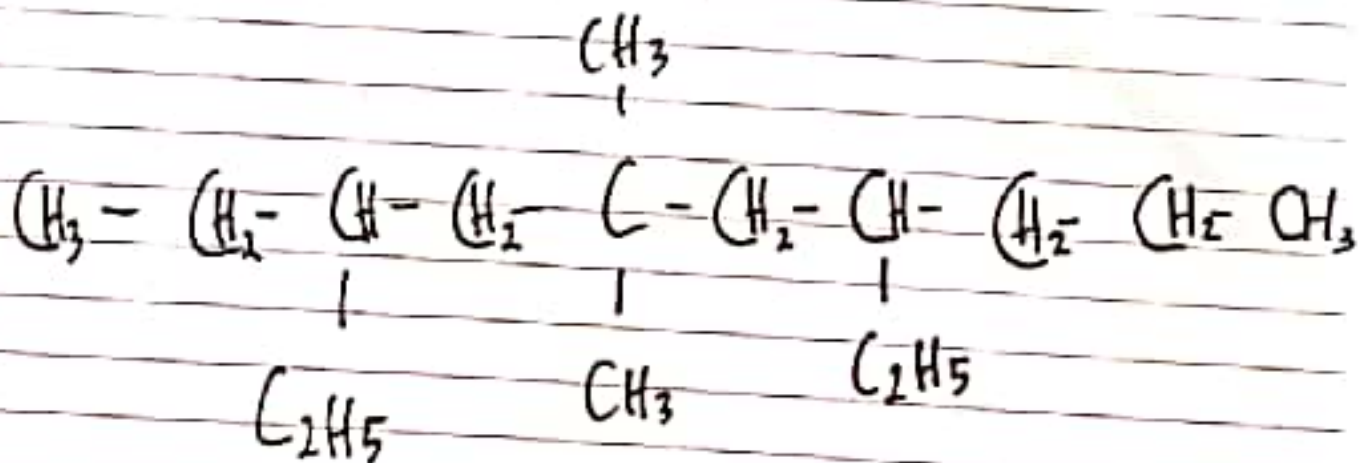 CH3
CH3 - CH2 - CH - CH2 - C - CH2 - CH - CH2 - CH2 - CH3
C2H5 CH3 C2H5